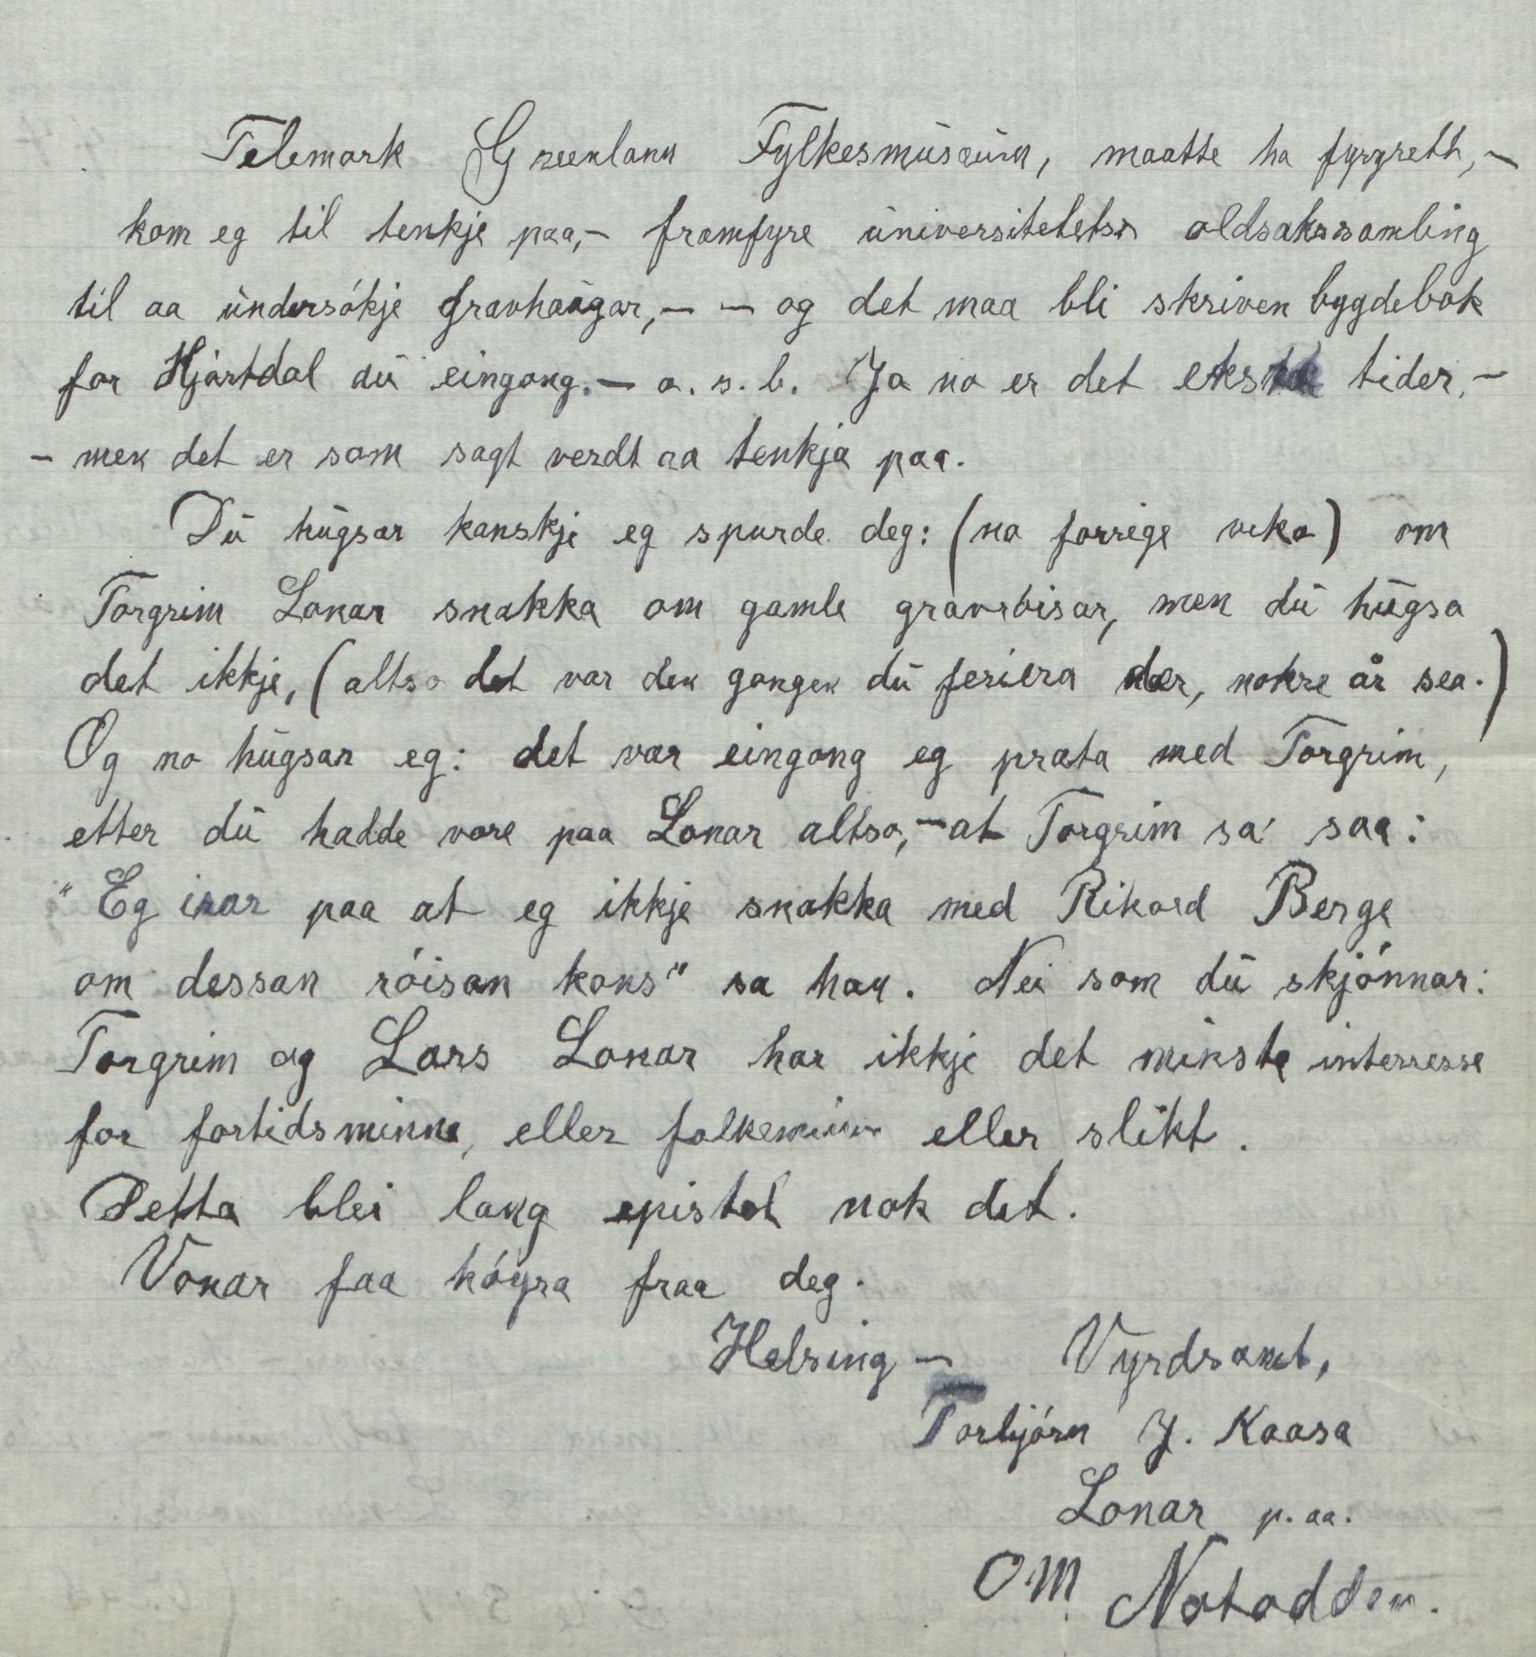 Telemark Greenlann Fylkesmuseum, maatte ha fyrerett, —
kom eg til tenkje paa, — framfyre universitetets oldsakssamling
til aa undersókje gravhaugar, — — og det maa bli skriven bygdebok
for Hjartdal du eingong. — o. s. b. Ja no er det ekstra tider, —
— men det er som sagt verdt aa tenkja paa.
Du hugsar kanskje eg spurde deg: (no forrige veka) om
Torgrim Lonar snakka om gamle gravróisar, men du hugsa
det ikkje, (altso det var den gongen du feriera der, nokre år sea.)
Og no hugsar eg: det var eingong eg prata med Torgrim,
etter du hadde vore paa Lonar altso, — at Torgrim sa' saa:
"Eg irar paa at eg ikkje snakka med Rikard Berge
om dessan róisan kons" sa han. Nei som du skjónnar:
Torgrim og Lars Lonar har ikkje det minste interresse
for fortidsminne, eller folkeminne eller slikt.
Detta blei lang epistel nok det.
Vonar faa hóyra fraa deg.
Helsing — Vyrdsamt,
Torbjórn J. Kaasa
Lonar p. aa.
OM Notodden.